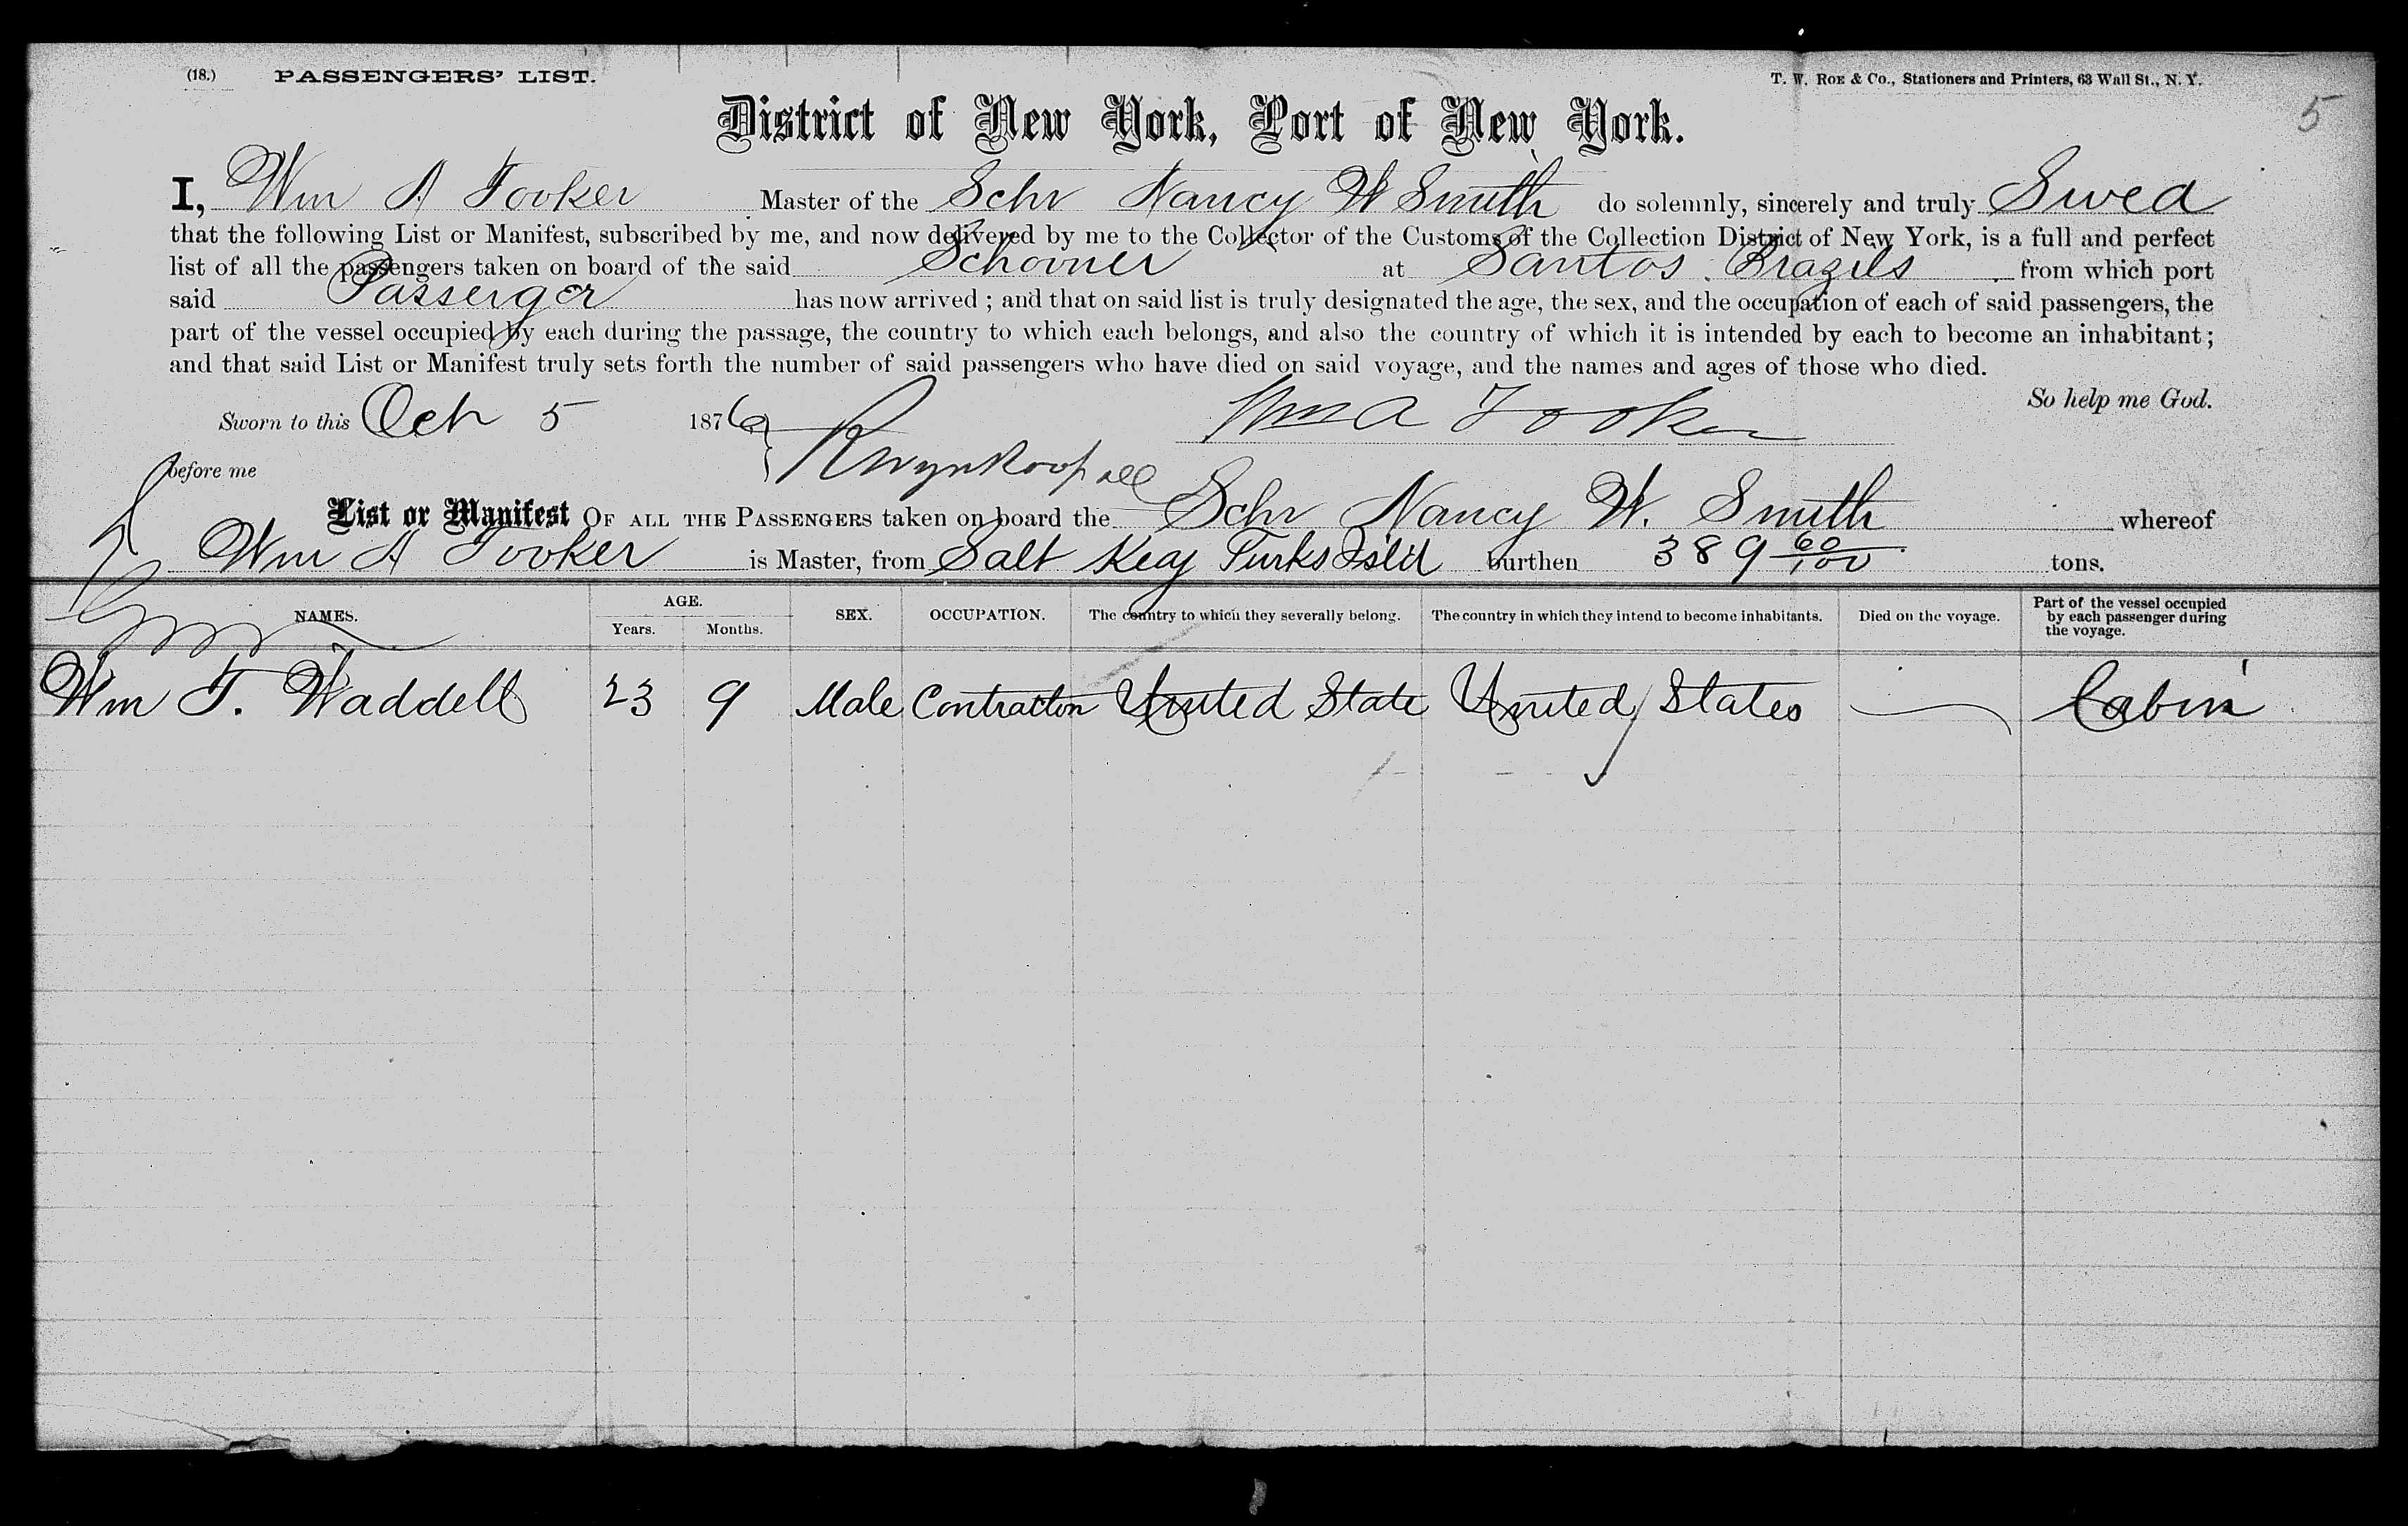 (18.) PASSENGERS' LIST. T. W. ROE & Co., Stationers and Printers, 63 Wall St., N. Y.
5
District of New York, Port of New York.
I, Wm A Tooker Master of the Schr Nancy W Smith do solemnly, sincerely and truly Swea
that the following List or Manifest, subscribed by me, and now delivered by me to the Collector of the Customs of the Collection District of New York, is a full and perfect
list of all the passengers taken on board of the said Schooner at Santos Brazils from which port
said Passenger has now arrived ; and that on said list is truly designated the age, the sex, and the occupation of each of said passengers, the
part of the vessel occupied by each during the passage, the country to which each belongs, and also the country of which it is intended by each to become an inhabitant ;
and that said List or Manifest truly sets forth the number of said passengers who have died on said voyage, and the names and ages of those who died.
So help me God.
Sworn to this Oct 5 1876 Wm A Tooker
before me
List or Manifest OF ALL THE PASSENGERS taken on board the Schr Nancy W. Smith whereof
Wm A Tooker is Master, from Salt Keay Turks Isl'd burthen 389 60/100 tons.
NAMES. AGE. Years. Months. SEX. OCCUPATION. The country to which they severally belong. The country in which they intend to become inhabitants. Died on the voyage. Part of the vessel occupied by each passenger during the voyage.
Wm T. Waddell 23 9 Male United State United States Cabin